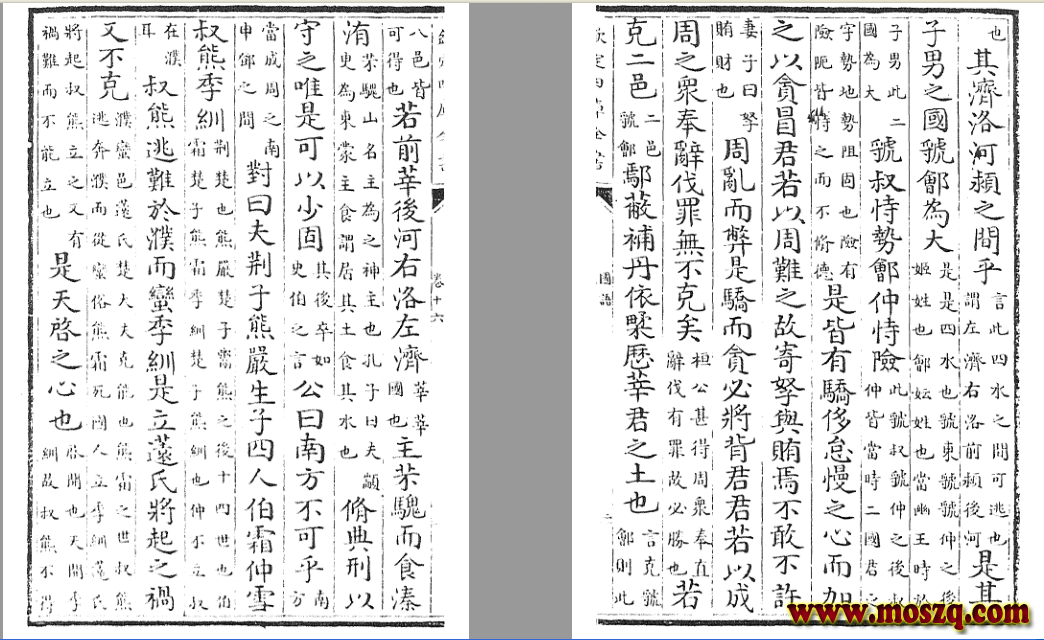 也其濟洛河潁之間乎言此四水之間可逃也謂左濟右洛前潁後河是其
子男之國虢鄶為大是是四水也虢東虢虢仲之後姬姓也鄶妘姓也當幽王時於
子男此二國為大虢叔恃勢鄶仲恃險此虢叔虢仲之後叔仲皆當時二國君之
字勢地勢阻固也險有險阨皆恃之而不脩德是皆有驕侈怠慢之心而加
之以貪冒君若以周難之故寄孥與賄焉不敢不許
妻子曰孥賄財也周亂而弊是驕而貪必將背君君若以成
周之眾奉辭伐罪無不克矣桓公甚得周眾奉直辭伐有罪故必勝也若
克二邑二邑虢鄶鄢蔽補丹依𪏭歷莘君之土也言克虢鄶則此
國語
卷十六
八邑皆可得也若前莘後河右洛左濟莘莘國也主芣騩而食溱
洧芣騩山名主為之神主也孔子曰夫顓臾為東蒙主食謂居其土食其水也脩典刑以
守之唯是可以少固其後卒如史伯之言公曰南方不可乎南方
當成周之南申鄧之間對曰夫荆子熊嚴生子四人伯霜仲雪
叔熊季紃荆楚也熊嚴楚子鬻熊之後十四世也伯霜楚子熊霜季紃楚子熊紃也仲不立叔
在濮耳叔熊逃難於濮而蠻季紃是立薳氏將起之禍
又不克濮蠻邑薳氏楚大夫克能也熊霜之世叔熊逃奔濮而從蠻俗熊霜死國人立季紃薳氏
將起叔熊立之又有禍難而不能立也是天啓之心也啟開也天開季紃故叔熊不得
www.moszq.com